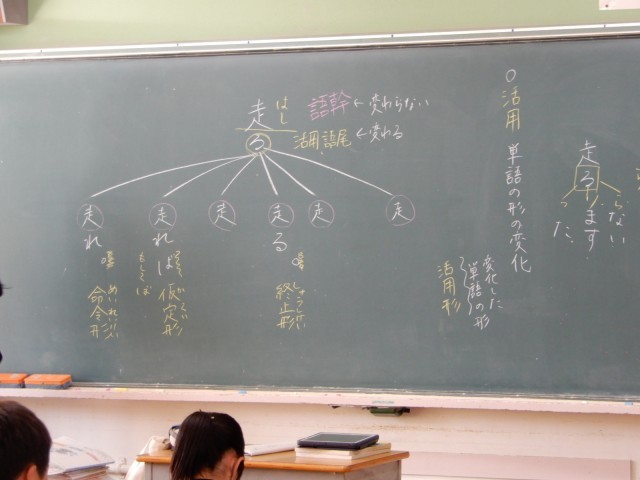 ○活用 単語の形の変化
走る
らない
ります
った
変化した
単語の形
活用形
走る
はし
語幹←変わらない
活用語尾←変わる
走
走
走る。
終止形
しゅうしけい
走
走れば
仮定形
かてい
もしくば
走れ。
命令形
めいれいけい